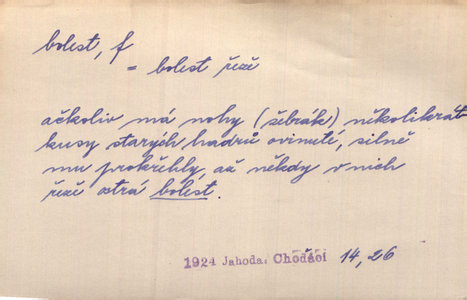 bolest, f
= bolest řeže
ačkoliv má nohy (žebrák) několikrát
kusy starých hadrů ovinuté, silně
mu prokřehly, až někdy v nich
řeže ostrá bolest.
1924 Jahoda: Chodáci 14, 26